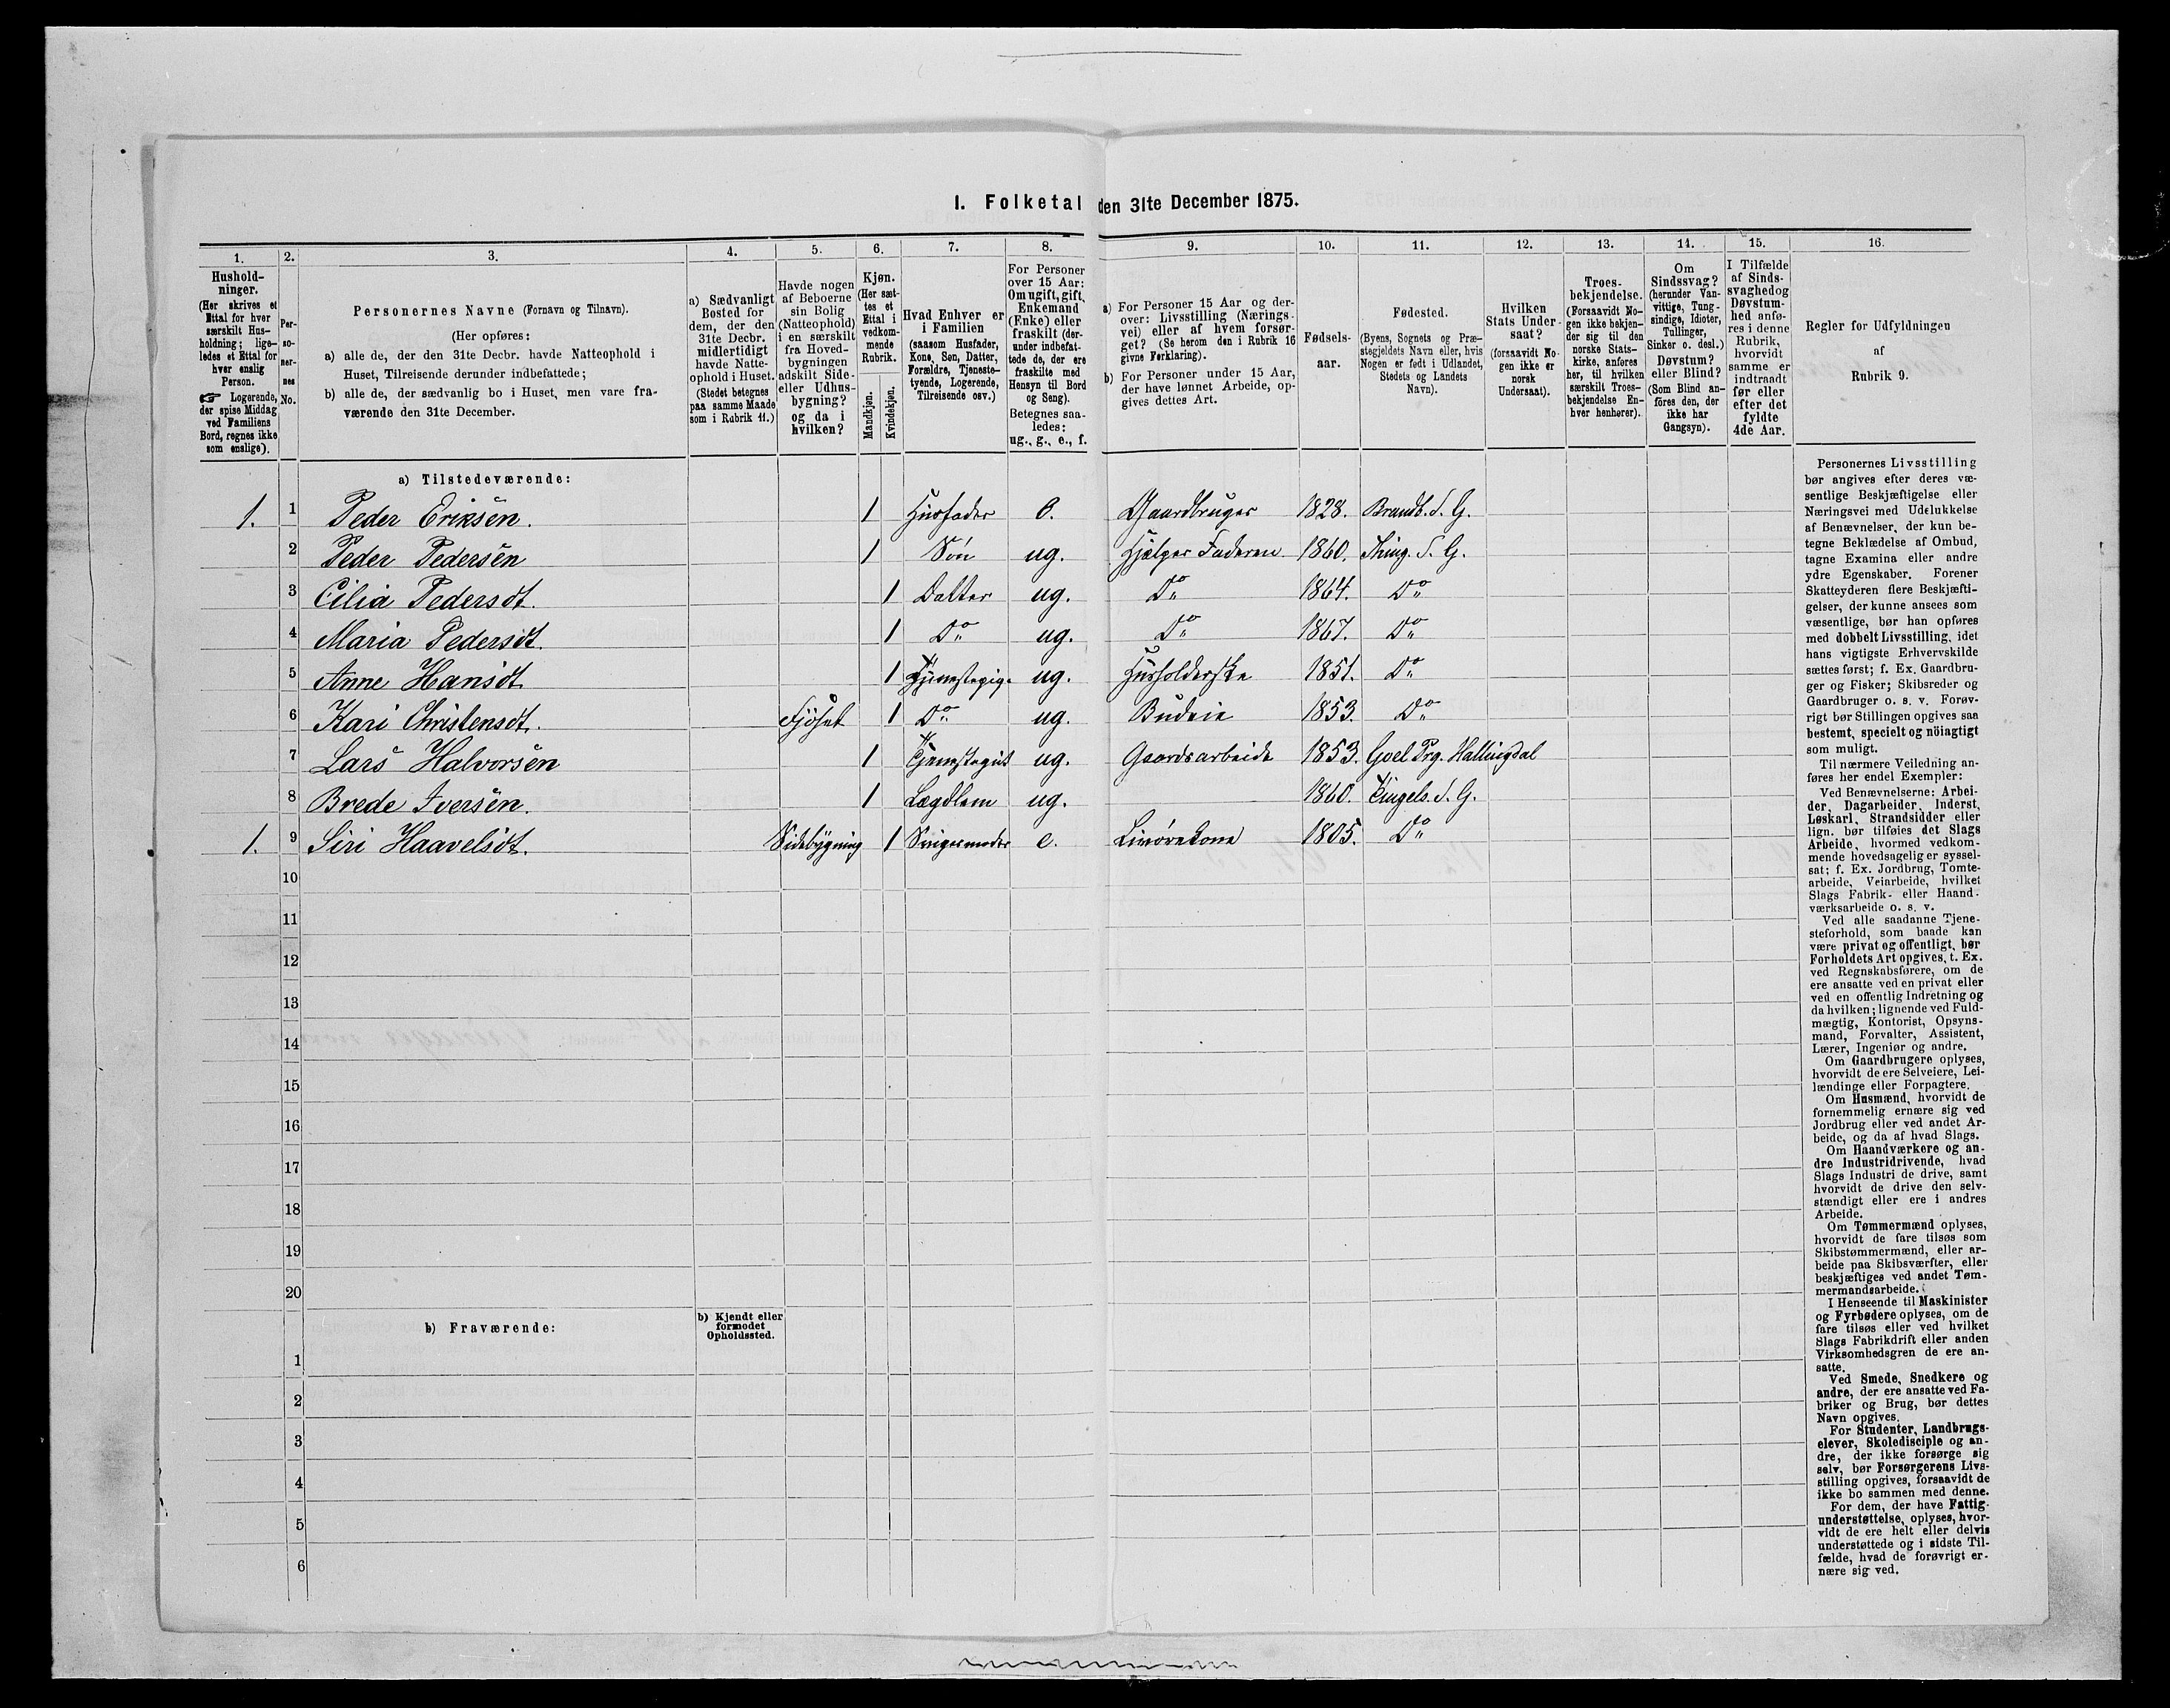 I. Folketal den 31te December 1875.
1.
Hushold-
ninger.
(Her skrives et
Ettal for hver
særskilt Hus-
holdning; lige-
ledes et Ettal for
hver enslig
Person.
☞ Logerende,
der spise Middag
ved Familiens
Bord, regnes ikke
som enslige).
2.
Per-
so-
ner-
nes
No.
3.
Personernes Navne (Fornavn og Tilnavn).
(Her opføres:
a) alle de, der den 31te Decbr. havde Natteophold i
Huset, Tilreisende derunder indbefattede;
b) alle de, der sædvanlig bo i Huset, men vare fra-
værende den 31te December.
4.
a) Sædvanligt
Bosted for
dem, der den
31te Decbr.
midlertidigt
havde Natte-
ophold i Huset.
(Stedet betegnes
paa samme Maade
som i Rubrik 11.)
5.
Havde nogen
af Beboerne
sin Bolig
(Natteophold)
i en særskilt
fra Hoved-
bygningen
adskilt Side-
eller Udhus-
bygning?
og da i
hvilken?
6.
Kjøn.
(Her sæt-
tes et
Ettal i
vedkom-
mende
Rubrik.
Mandkjøn.
Kvindekjøn.
7.
Hvad Enhver er
i Familien
(saasom Husfader,
Kone, Søn, Datter,
Forældre, Tjeneste-
tyende, Logerende,
Tilreisende osv.)
8.
For Personer
over 15 Aar:
Om ugift, gift,
Enkemand
(Enke) eller
fraskilt (der-
under indbefat-
tede de, der ere
fraskilte med
Hensyn til Bord
og Seng).
Betegnes saa-
ledes:
ug., g., e., f.
9.
a) For Personer 15 Aar og der-
over: Livsstilling (Nærings-
vei) eller af hvem forsør-
get? (Se herom den i Rubrik 16
givne Forklaring).
b) For Personer under 15 Aar,
der have lønnet Arbeide, op-
gives dettes Art.
10.
Fødsels-
aar.
11.
Fødested.
(Byens, Sognets og Præ-
stegjeldets Navn eller, hvis
Nogen er født i Udlandet,
Stedets og Landets
Navn).
12.
Hvilken
Stats Under-
saat?
(forsaavidt No-
gen ikke er
norsk
Undersaat).
13.
Troes-
bekjendelse.
(Forsaavidt No-
gen ikke bekjen-
der sig til den
norske Stats-
kirke, anføres
her, til hvilken
særskilt Troes-
bekjendelse En-
hver henhører).
14.
Om
Sindssvag?
(herunder Van-
vittige, Tung-
sindige, Idioter,
Tullinger,
Sinker o. desl.)
Døvstum?
eller Blind?
(Som Blind an-
føres den, der
ikke har
Gangsyn).
15.
I Tilfælde
af Sinds-
svaghed og
Døvstum-
hed anfø-
res i denne
Rubrik,
hvorvidt
samme er
indtraadt
før eller
efter det
fyldte
4de Aar.
16.
Regler for Udfyldningen
af
Rubrik 9.
a) Tilstedeværende:
1. 1 Peder Eriksen. 1 Husfader e. Gaardbruger 1828. Brandb. S. G.
2 Peder Pedersen 1 Søn ug. Hjælper Faderen 1860. Thing. S. G.
3 Cilia Pedersdt. 1 Datter ug. Do 1864. Do
4 Maria Pedersdt. 1 Do ug. Do 1867. Do
5 Anne Hansdt. 1 Tjenstepig. ug. Husholderske 1851. Do
6 Kari Christensdt. Fjøset 1 Do ug. Budeie 1853. Do
7 Lars Halvorsen 1 Tjenstegut ug. Gaardsarbeide 1853. Goel Prg. Hallingdal
8 Brede Iversen. 1 Lægdlem ug. 1860. Tingels. S. G.
1. 9 Siri Haavelsdt. Sidebygning 1 Svigermoder e. 1805. Do
10
11
12
13
14
15
16
17
18
19
20
b) Fraværende:
b) Kjendt eller
formodet
Opholdssted.
1
2
3
4
5
6
Personernes Livsstilling
bør angives efter deres væ-
sentlige Beskjæftigelse eller
Næringsvei med Udelukkelse
af Benævnelser, der kun be-
tegne Beklædelse af Ombud,
tagne Examina eller andre
ydre Egenskaber. Forener
Skatteyderen flere Beskjæfti-
gelser, der kunne ansees som
væsentlige, bør han opføres
med dobbelt Livsstilling, idet
hans vigtigste Erhvervskilde
sættes først; f. Ex. Gaardbru-
ger og Fisker; Skibsreder og
Gaardbruger o. s. v. Forøv-
rigt bør Stillingen opgives saa
bestemt, specielt og nöiagtigt
som muligt.
Til nærmere Veiledning an-
føres her endel Exempler:
Ved Benævnelserne: Arbei-
der, Dagarbeider, Inderst,
Løskarl, Strandsidder eller
lign. bør tilføies det Slags
Arbeide, hvormed vedkom-
mende hovedsagelig er syssel-
sat; f. Ex. Jordbrug, Tomte-
arbeide, Veiarbeide, hvilket
Slags Fabrik- eller Haand-
værksarbeide o. s. v.
Ved alle saadanne Tjene-
steforhold, som baade kan
være privat og offentligt, bør
Forholdets Art opgives, t. Ex.
ved Regnskabsførere, om de
ere ansatte ved en privat eller
ved en offentlig Indretning og
da hvilken; lignende ved Fuld-
mægtig, Kontorist, Opsyns-
mand, Forvalter, Assistent,
Lærer, Ingeniør og andre.
Om Gaardbrugere oplyses,
hvorvidt de ere Selveiere, Lei-
lændinge eller Forpagtere.
Om Husmænd, hvorvidt de
fornemmelig ernære sig ved
Jordbrug eller ved andet Ar-
beide, og da af hvad Slags.
Om Haandværkere og an-
dre Industridrivende, hvad
Slags Industri de drive, samt
hvorvidt de drive den selv-
stændigt eller ere i andres
Arbeide.
Om Tømmermænd oplyses,
hvorvidt de fare tilsøs som
Skibstømmermænd, eller ar-
beide paa Skibsværfter, eller
beskjæftiges ved andet Tøm-
mermandsarbeide.
I Henseende til Maskinister
og Fyrbødere oplyses, om de
fare tilsøs eller ved hvilket
Slags Fabrikdrift eller anden
Virksomhedsgren de ere an-
satte.
Ved Smede, Snedkere og
andre, der ere ansatte ved Fa-
briker og Brug, bør dettes
Navn opgives.
For Studenter, Landbrugs-
elever, Skoledisciple og an-
dre, der ikke forsørge sig
selv, bør Forsørgerens Livs-
stilling opgives, forsaavidt de
ikke bo sammen med denne.
For dem, der have Fattig-
understøttelse, oplyses, hvor-
vidt de ere helt eller delvis
understøttede og i sidste Til-
fælde, hvad de forøvrigt er-
nære sig ved.